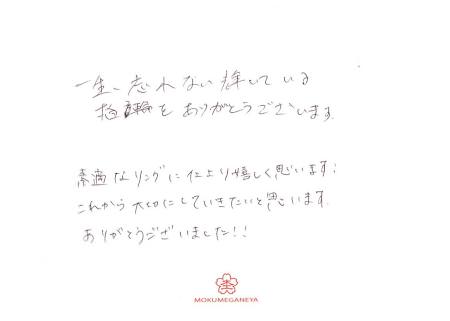 一生、忘れない
いている
指輪をありがとうございます。
素適なリングになり嬉しく思います!
これから大切にしていきたいと思います。
ありがとうございました!!
杢
MOKUMEGANEYA